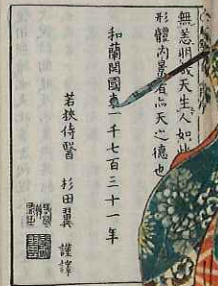 無恙明成天生人如此
形體内景者亦天之德也
和蘭開國 一千七百三十一年
若狭侍醫 杉田翼 謹譯